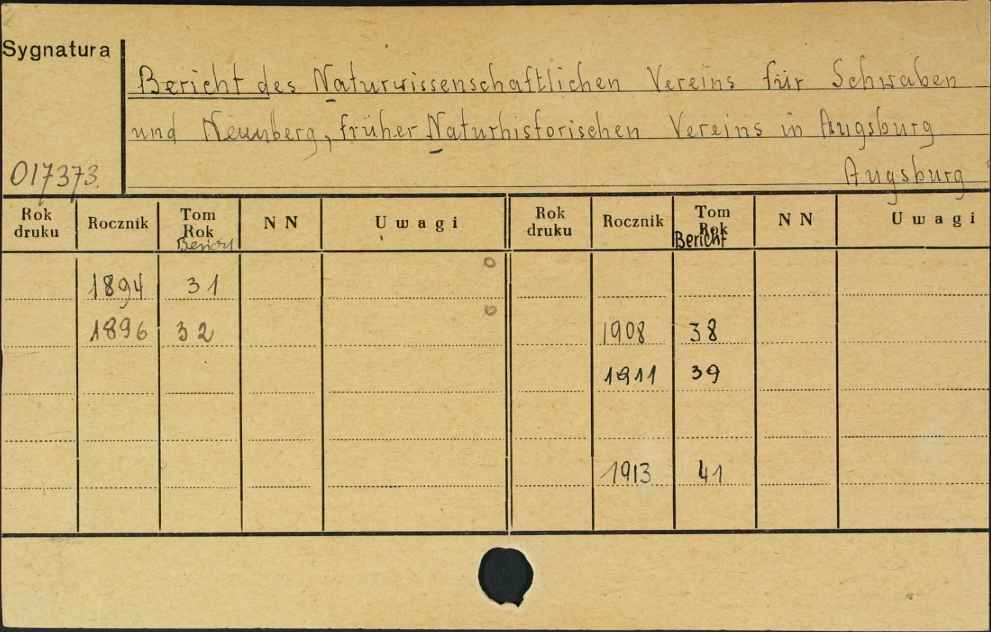 Sygnatura
Bericht des Naturwissenschaftlichen Vereins für Schwaben
und Neuunberg, früher Naturhistorischen Vereins in Augsburg
017373. Augsburg
Rok druku Rocznik Tom Rok Bericht NN Uwagi Rok druku Rocznik Tom Rok Bericht NN Uwagi
1894 31
1896 32 1908 38
1911 39
1913 41